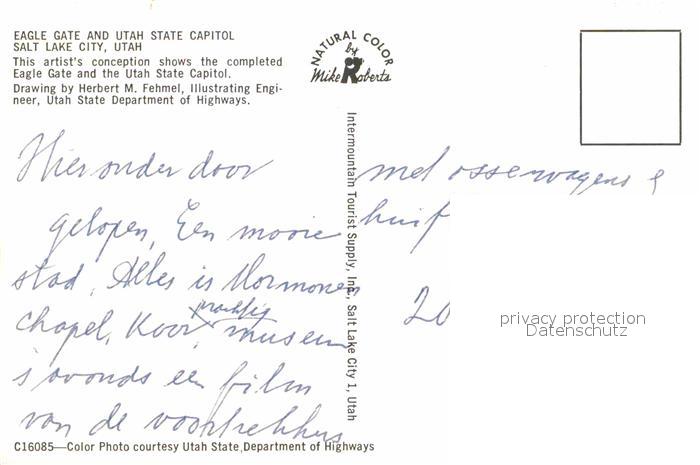 EAGLE GATE AND UTAH STATE CAPITOL
SALT LAKE CITY, UTAH
This artist's conception shows the completed
Eagle Gate and the Utah State Capitol.
Drawing by Herbert M. Fehmel, Illustrating Engi-
neer, Utah State Department of Highways.
NATURAL COLOR
by
Mike Roberts
Hieronder door
gelopen, Een mooie
stad. Alles is Mormonen
prachtig
chapel, Koor, museum
s avonds een film
van de voortrekkers
met ossewagens e
huif
20
Intermountain Tourist Supply, Inc., Salt Lake City 1, Utah
privacy protection
Datenschutz
C16085—Color Photo courtesy Utah State Department of Highways